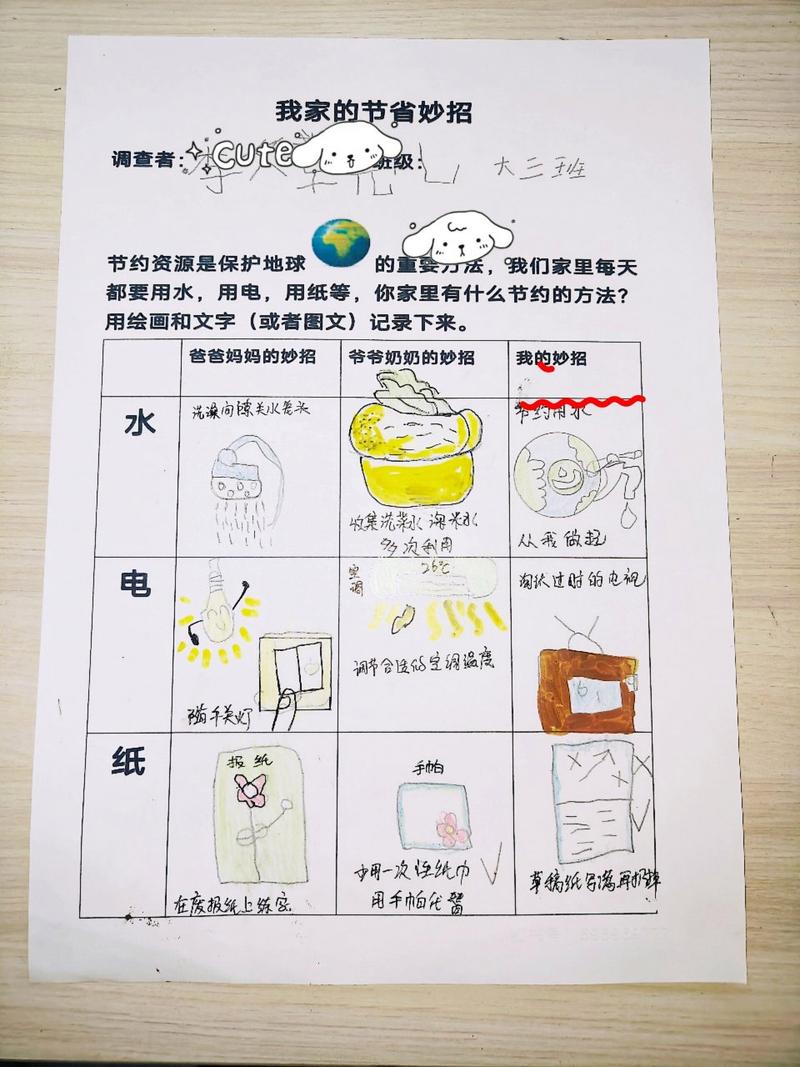 我家的节省妙招
调查者：李 cute 班级： 大三班
节约资源是保护地球 的重要方法，我们家里每天
都要用水，用电，用纸等，你家里有什么节约的方法？
用绘画和文字（或者图文）记录下来。
爸爸妈妈的妙招 爷爷奶奶的妙招 我的妙招
水
洗澡间隙关水笼头
收集洗菜水 淘米水
多次利用
节约用水
从我做起
电
随手关灯
空调
26℃
调节合适的空调温度
淘汰过时的电视
纸
报纸
在废报纸上练字
手帕
少用一次性纸巾
用手帕代替
草稿纸写满再扔掉